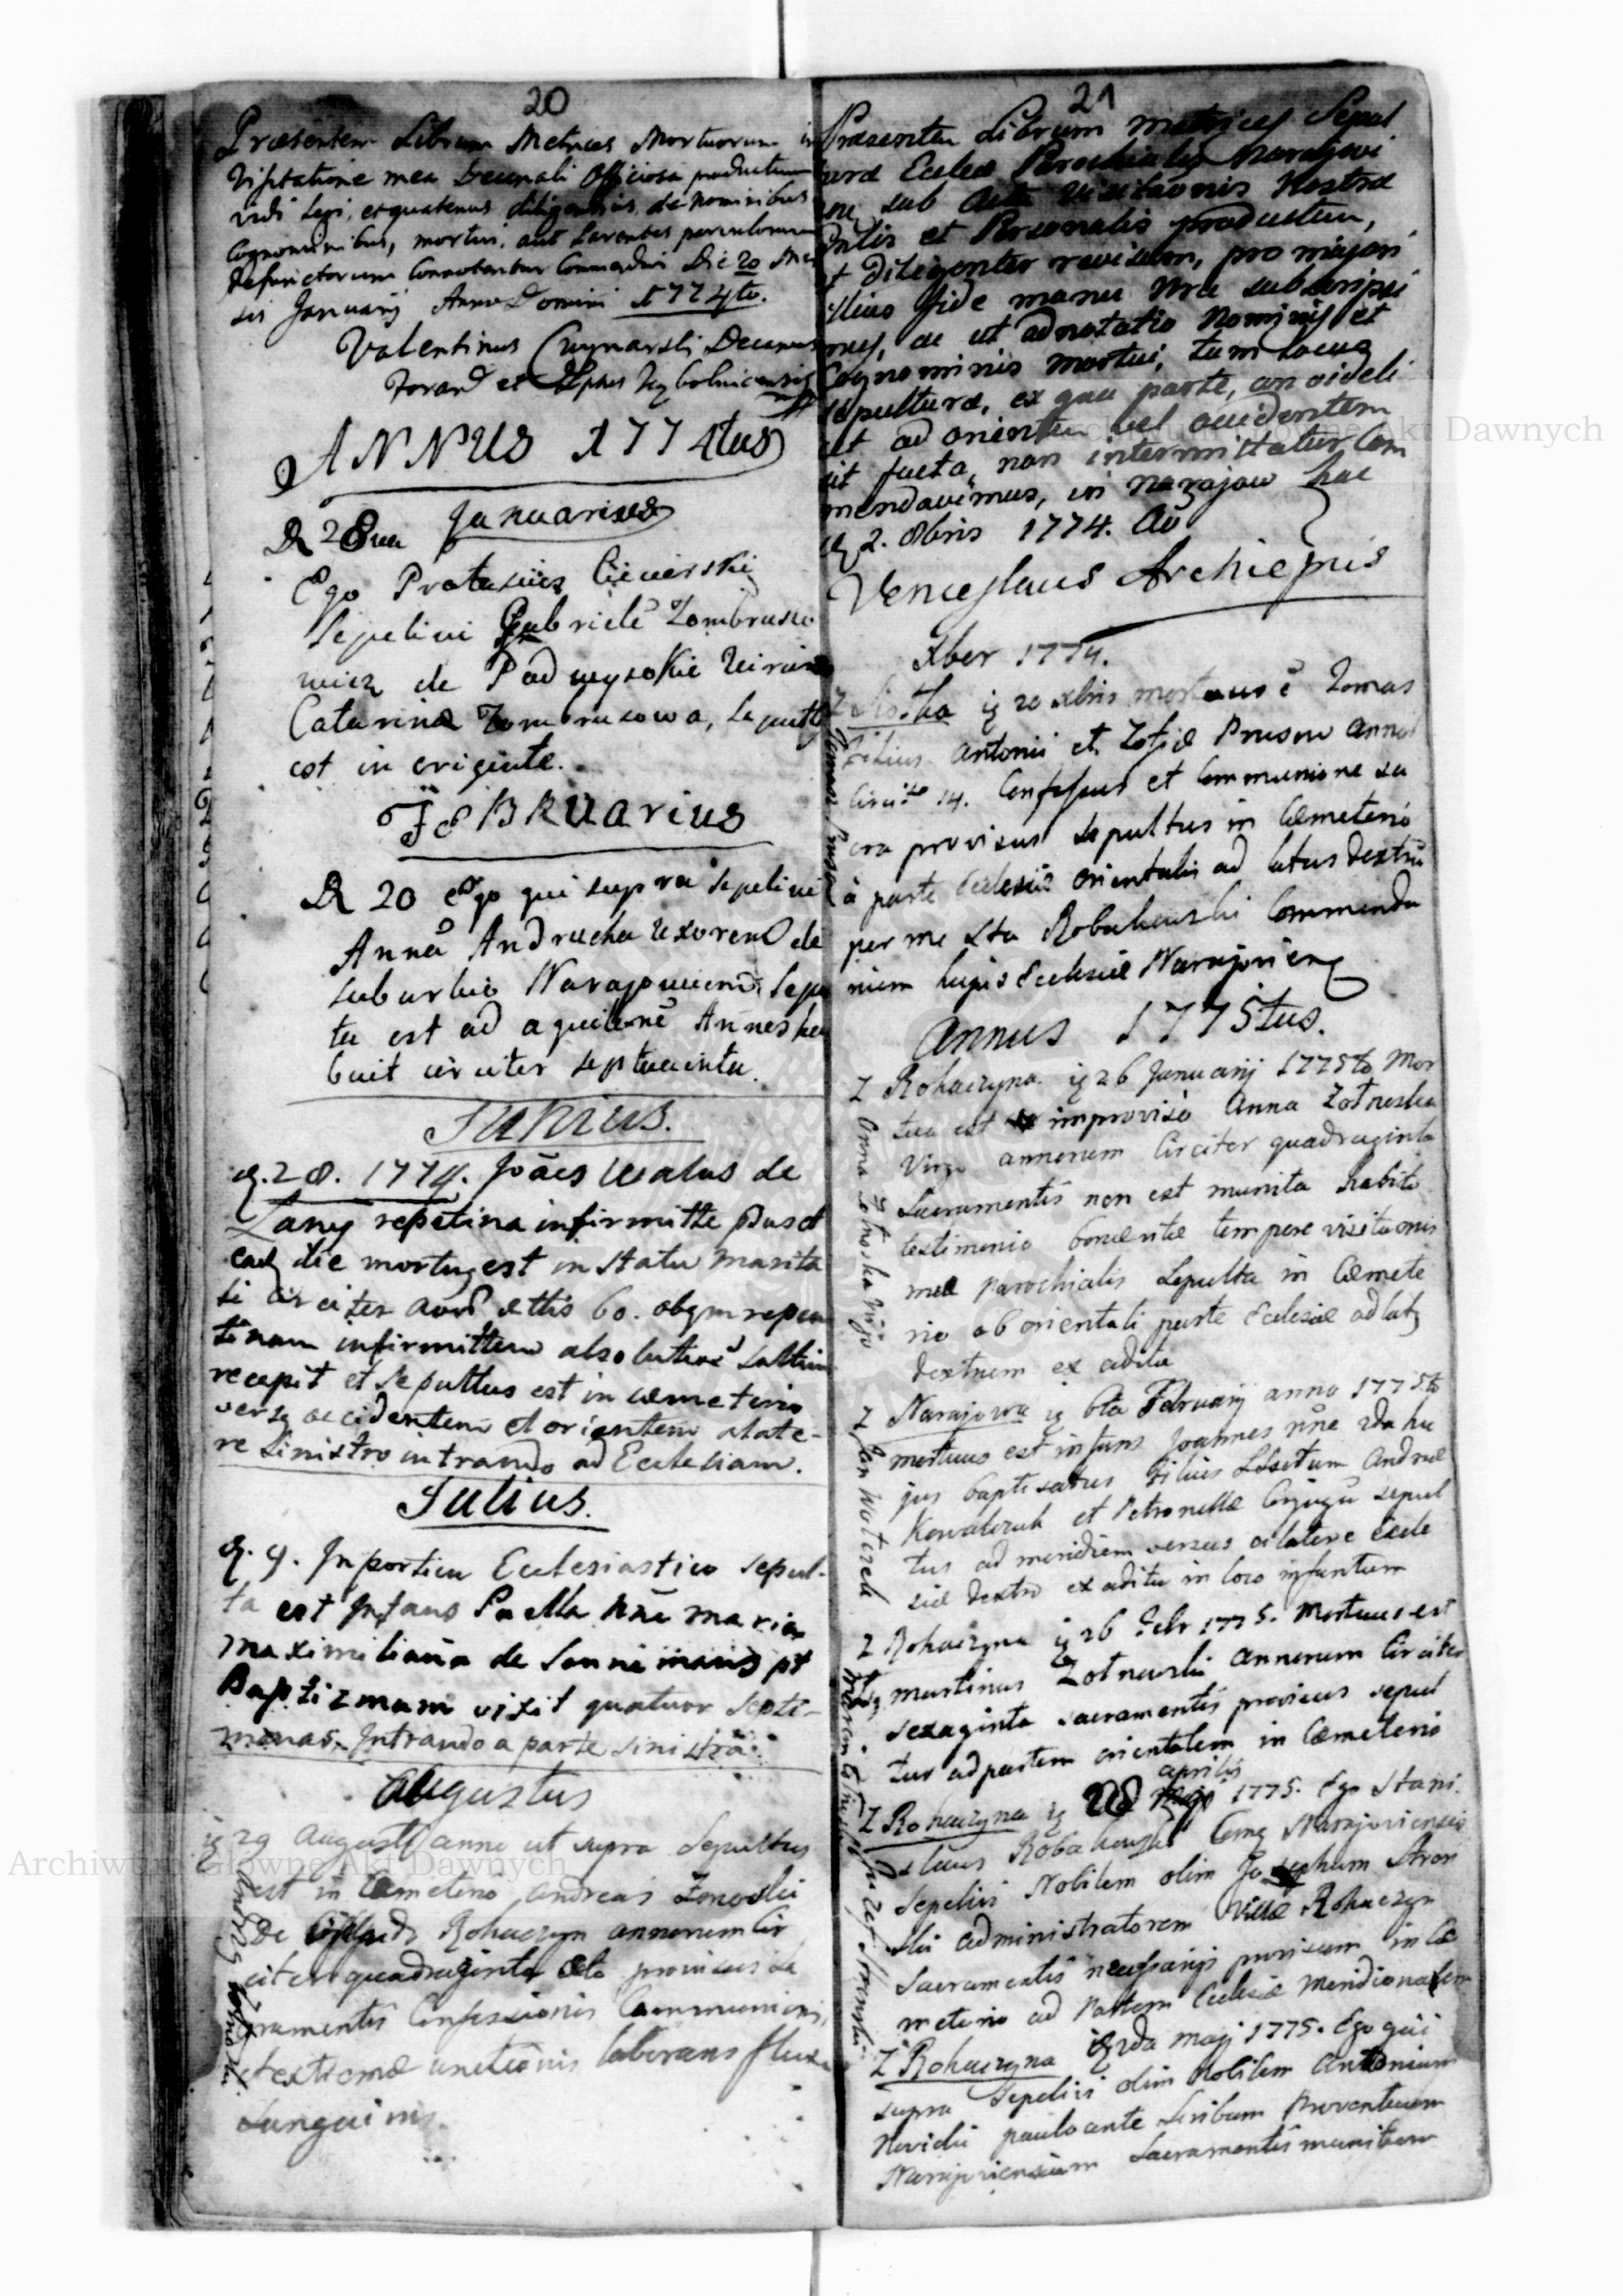 20
Præsentem Librum Metrices Mortuorum in
Visitatione mea Decanali Officiosa productum
vidi legi, et quatenus diligentius de nominibus
Cognominibus, mortui, aut Parentes parvulorum
defunctorum Connotentur Commendavi Die 20 Men
sis Januarij Anno Domini 1774to.
Valentinus Decanus
et
ANNUS 1774tus
Januarius
D 28va
Ego Protasius Ciewerski
Sepelivi Gabrielē Zombrusco
wicz de Podwysokie
Catarinæ Zombruscowa, Sepultꝰ
est in oriente.
FEBRUARIUS
D 20 Ego qui supra sepelivi
Annā Andrucha Uxorem de
suburbio Narajoviensi, Sepu
ta est ad aquilonē Annos ha
buit circiter septuaginta.
Junius.
D. 28. 1774. Joães Walus de
Łany repetina infirmitte
ead die mortuꝰ est in statu marita
li circiter ætis 60. ob qm repen
tinam infirmittem absolutionē saltim
recepit et Sepultus est in cæmeterio
versꝰ occidentem et orientem a late-
re Sinistro intrando ad Ecclesiam.
Julius.
D. 9. In porticu Ecclesiastico sepul-
ta est Infans Puella nñe Maria
Maximiliana de pt
Baptizmum vixit quatuor Septi-
manas. Intrando a parte sinistra.
Augustus
29 Augusti anno ut supra Sepultus
est in Cæmeterio Andreas
De Rohaczyn annorum Cir
citer quadraginta octo provisus Sa
cramentis Confessionis Communionis,
et extremæ unctionis laborans fluxu
Sanguinis.
21
Præsentem Librum metrices Sepul
turæ Eccleæ Parochialis Narajovi
en sub Actu Visitāonis Nostræ
Gnlis et Personalis productum,
et diligenter revisum, pro majori
illius fide manu Nra subscripsi
mus, ac ut adnotatio Nominis et
Cognominis mortui, tum locus
sepulturæ, ex qua parte, an videli
cet ad orientem vel occidentem
sit facta, non intermittatur Com
mendavimus, in Narajow hac
D 2. 8bris 1774. Aō
Venceslaus Archieppus
Xber 1774.
20 Xbris mortuus ē Tomas
Filius Antonii et Zofiæ Prusow anno
Circitꝰ 14. Confessus et Communione sa
cra provisus sepultus in Cæmeterio
à parte Ecclesiæ orientalis ad latus dextrū
per me Sta Robakowski Commenda
rium hujus Ecclesiæ Narajovien
Annus 1775tus.
Z Rohaczyna 26 Januarij 1775to Mor
tua est improviso Anna Zołneska
Virgo annorum Circiter quadraginta
Sacramentis non est munita habito
testimonio bonæ vitæ tempore visitāonis
meæ parochialis Sepulta in Cæmete
rio ab orientali parte Ecclesiæ ad latꝰ
dextrum ex aditu
Z Narajowa 6ta Februarij anno 1775to
mortuus est infans Joannes nñe 2da hu
jus baptisatus Filius Andreæ
Kowalczuk et Petronellæ Conjugū sepul
tus ad meridiem versus a latere Eccle
siæ dextro ex aditu in loco infantum
Z Rohaczyna 26 Febr 1775. Mortuus est
Martinus Zołnowski annorum Circiter
sexaginta sacramentis provisus sepul
tur ad partem orientalem in Cæmeterio
aprilis
Z Rohaczyna 28 1775. Ego Stani
slaus Robakowski Narajoviensis
Sepelivi Nobilem olim Josephum Stron
ski administratorem Villæ Rohaczyn
Sacramentis necessarijs provisum in Cæ
meterio ad Partem Ecclesiæ meridionalem
Z Rohaczyna 2da Maij 1775. Ego qui
supra Sepelivi olim Nobilem Antonium
paulo ante Scribam Proventuum
Narajoviensium Sacramentis munitum